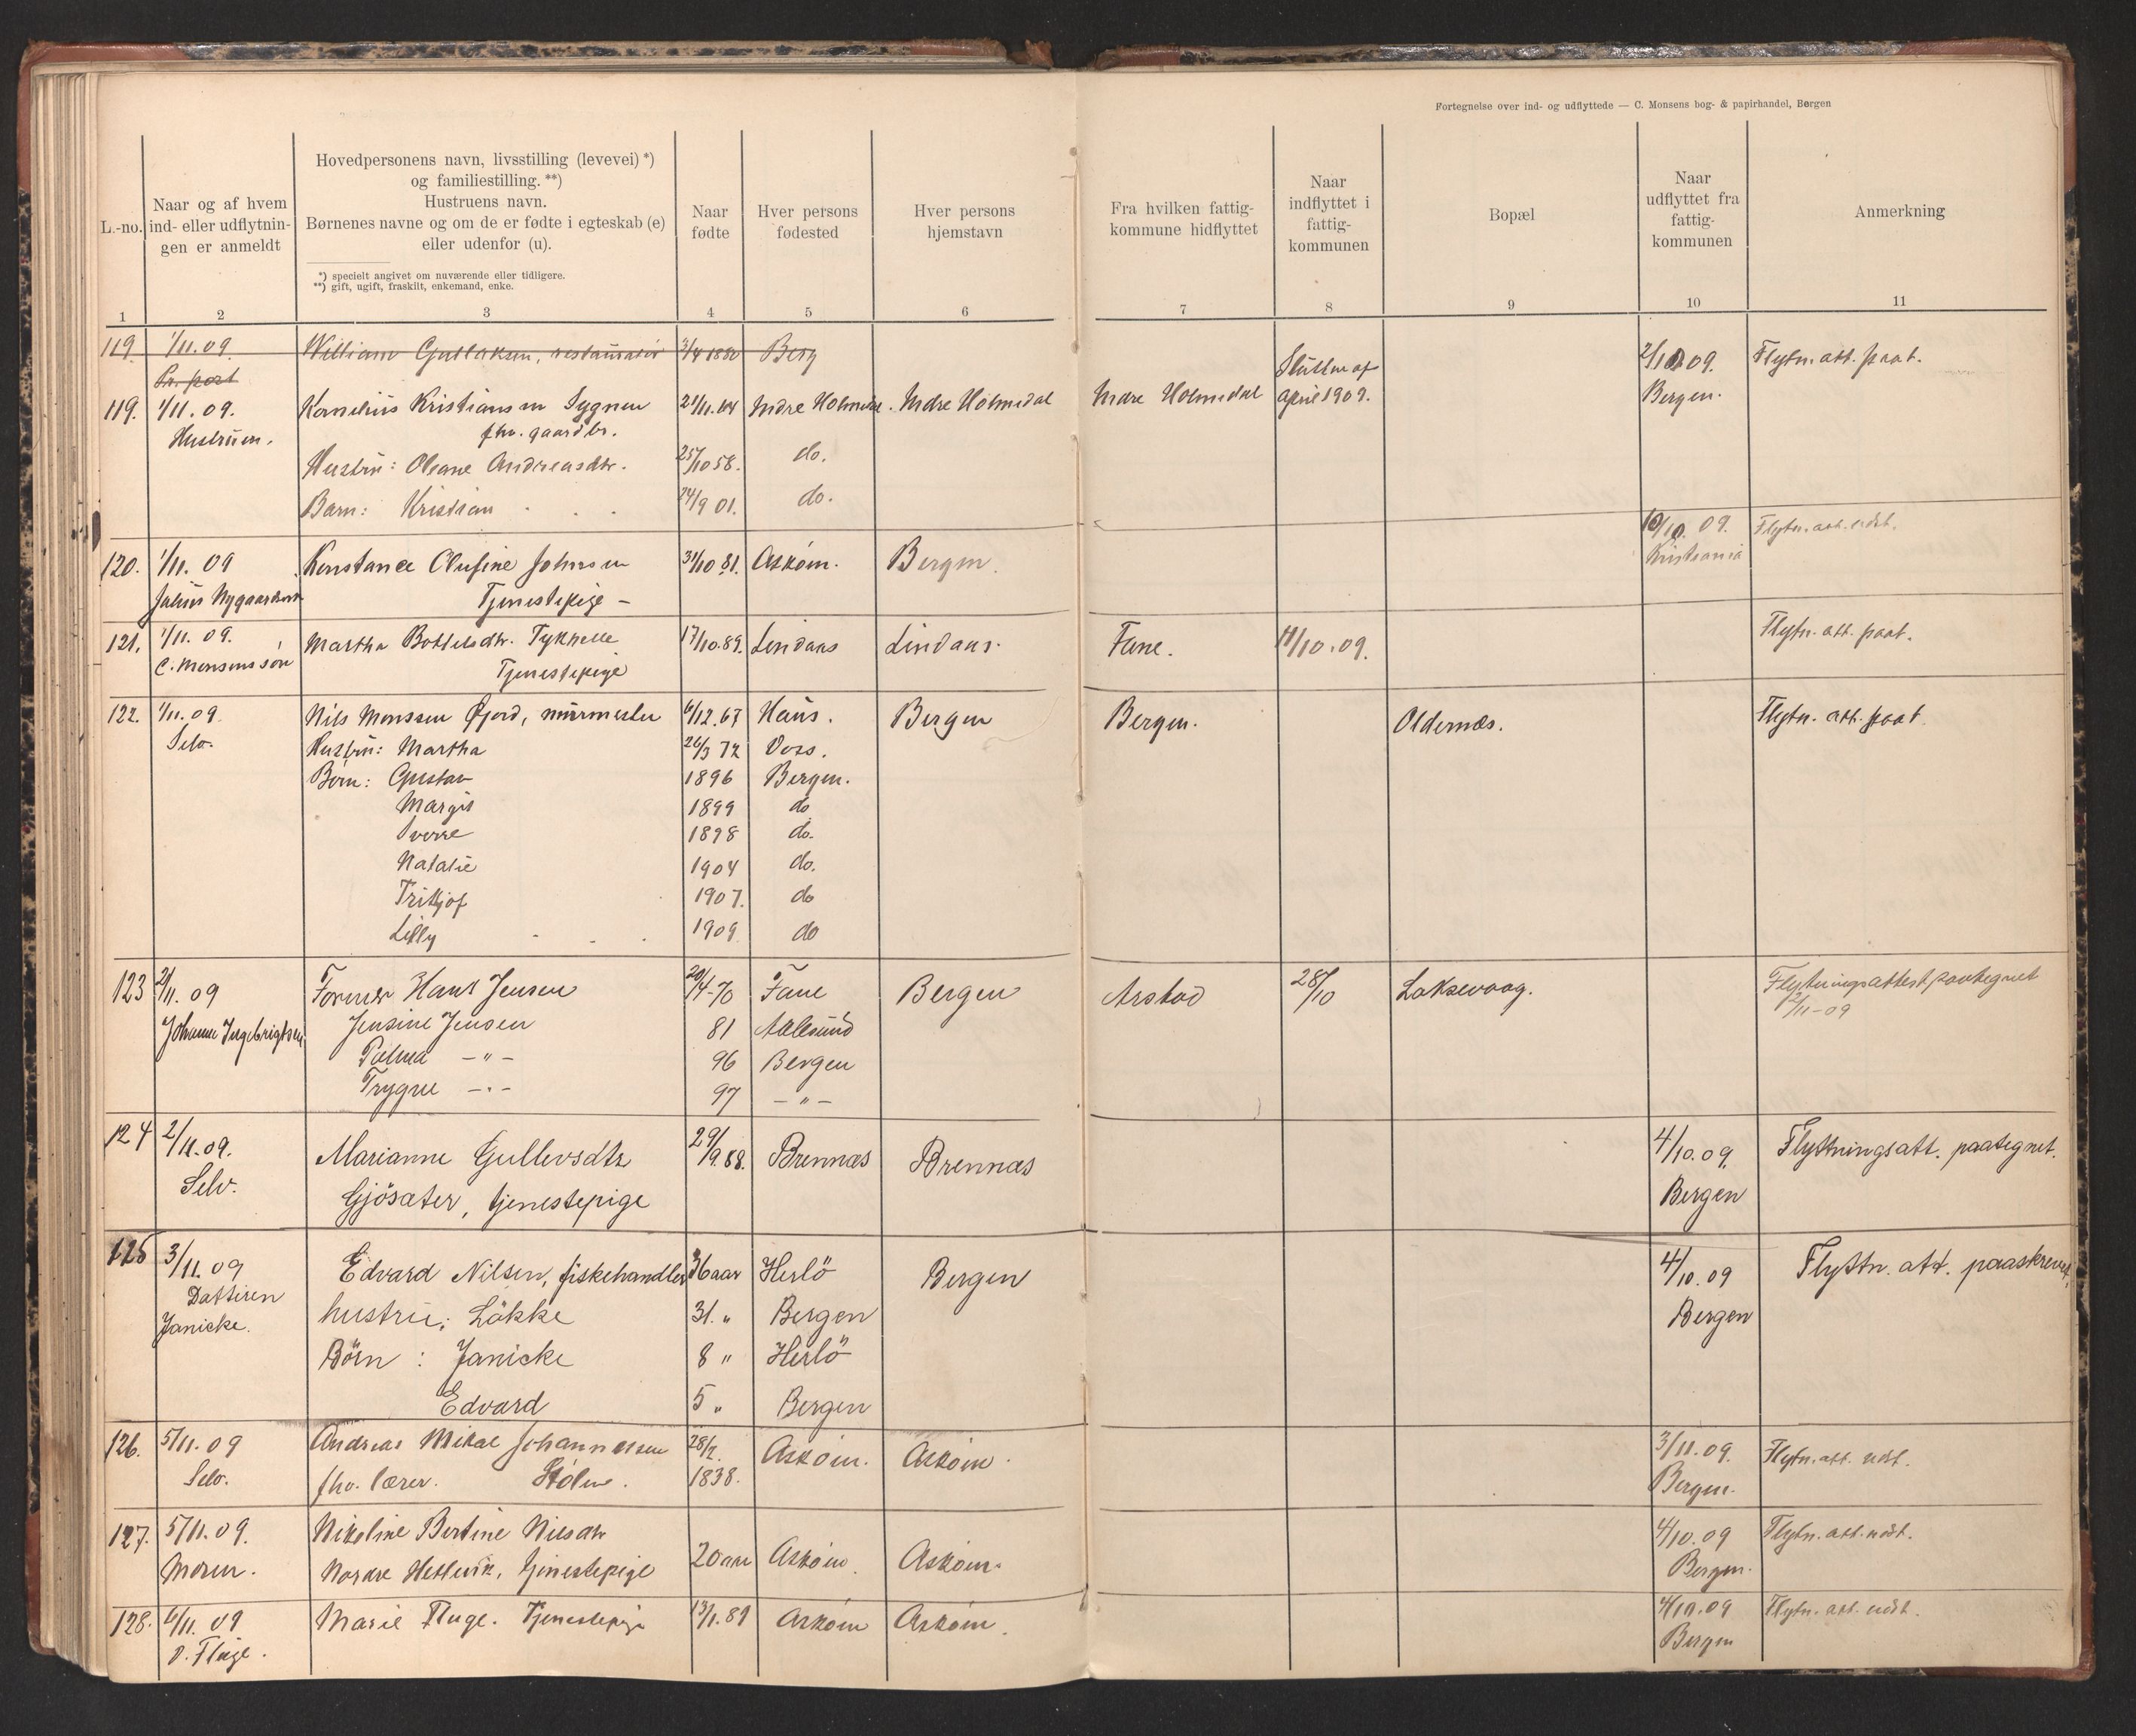 Fortegnelse over ind- og udflyttede — C. Monsens bog- & papirhandel, Bergen
L.-no.
Naar og af hvem
ind- eller udflytnin-
gen er anmeldt
Hovedpersonens navn, livsstilling (levevei) *)
og familiestilling. **)
Hustruens navn.
Børnenes navne og om de er fødte i egteskab (e)
eller udenfor (u).
*) specielt angivet om nuværende eller tidligere.
**) gift, ugift, fraskilt, enkemand, enke.
Naar
fødte
Hver persons
fødested
Hver persons
hjemstavn
Fra hvilken fattig-
kommune hidflyttet
Naar
indflyttet i
fattig-
kommunen
Bopæl
Naar
udflyttet fra
fattig-
kommunen
Anmerkning
1 2 3 4 5 6 7 8 9 10 11
119. 1/11.09. William Gullaksen, restauratør 3/4 1880 Berg 2/10 09. Flytn. att. paat.
Pr. post Slutten af
119. 1/11.09. Kornelius Kristiansen Sygnen 21/11.64 Indre Holmedal. Indre Holmedal Indre Holmedal April 1909. Bergen.
Hustruen. fhv. gaardbr.
Hustru: Oleane Andreasdtr. 25/10 58. do.
Barn: Kristian 24/9 01. do.
10/10. 09. Flytn. att. udst.
120. 1/11. 09 Konstance Olufine Johnsen 31/10 81. Askøin. Bergen. Kristiania
Julius Nygaardsvik Tjenestepige –
121. 1/11.09. Martha Bottelsdtr. Tykhelle 17/10.89. Lindaas Lindaas. Fane. 4/10.09. Flytn. att. paat.
C. Monsens søn Tjenestepige
122. 1/11.09. Nils Monssen Gjerd, murmester 6/12.67 Haus. Bergen Bergen. Oldernæs. Flytn. att. paat.
Selv. Hustru: Martha 26/3 72 Voss.
Børn: Gustav 1896 Bergen.
Margit 1899 do
Sverre 1898 do.
Natalie 1904 do.
Fritjof 1907. do
Lilly 1909 do
123 2/11.09 Former Hans Jensen 20/4-70 Fane Bergen Arstad 28/10 Laksevaag. Flytningsattest paategnet
Johanne Ingebrigtsen Jensine Jensen 81 Aalesund 2/11-09
Palma –"– 96 Bergen
Trygve –"– 97 –"–
124 2/11.09. Marianne Gullevsdtr 29/9.88. Brennæs Brennæs 4/10.09. Flyttningsatt. paategnet.
Selv. Gjøsater, tjenestepige Bergen
125 3/11.09 Edvard Nilsen, fiskehandler 36 aar Herlö Bergen 4/10.09 Flyttn. att. paaskrevet.
Datteren hustru: Läkke 31. " Bergen Bergen
Janicke. Börn : Janicke 8 " Herlö
Edvard 5 " Bergen
126. 5/11.09 Andreas Mikal Johannessen 28/2. Askøin. Askøin. 3/11.09. Flytn. att. udst.
Selv. fhv. lærer. 1838. Bergen.
127. 5/11.09. Nikoline Bertine Nilsdtr 4/10.09 Flytn. att. udst.
Moren. Nordre Hetlevik, tjenestepige 20 aar Askøin. Askøin. Bergen.
128. 6/11.09 Marie Fluge. Tjenestepige 13/1.89 Askøin Askøin. 4/10.09 Flytn. att. udst.
O. Fluge. Bergen